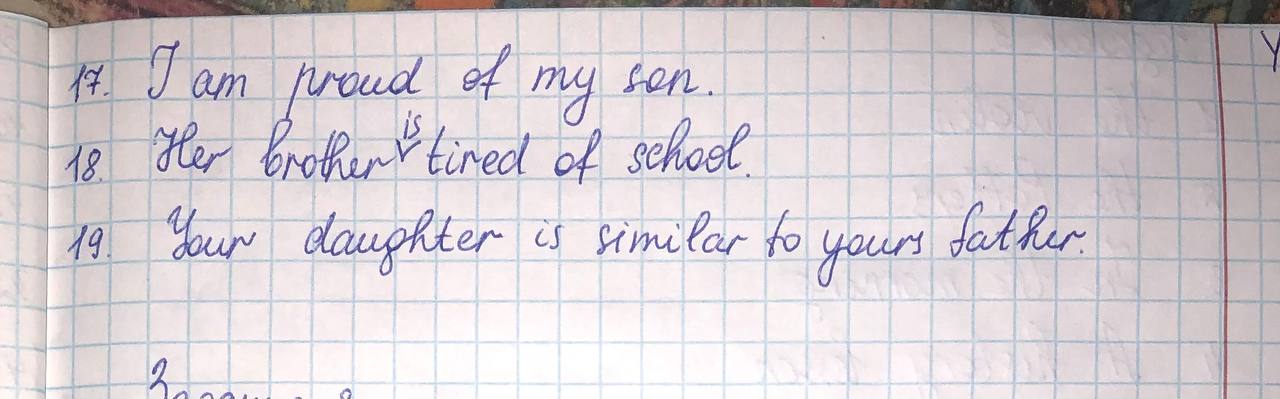 17. I am proud of my son.
18. Her brother is tired of school.
19. Your daughter is similar to yours father.